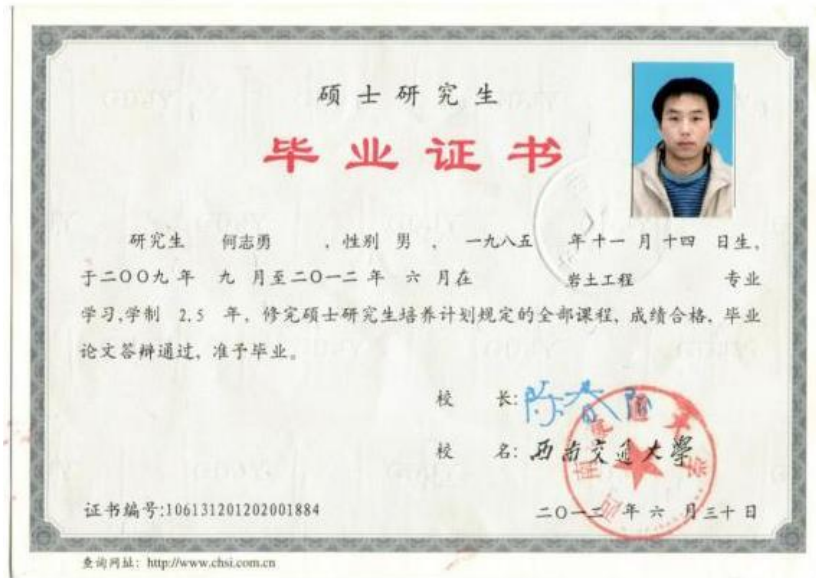 硕士研究生
毕业证书
研究生 何志勇 ,性别 男 , 一九八五 年十一月十四 日生,
于二〇〇九年 九 月至二〇一二年 六 月在 岩土工程 专业
学习,学制 2.5 年,修完硕士研究生培养计划规定的全部课程,成绩合格,毕业
论文答辩通过,准予毕业。
校 长:陈春阳
校 名:西南交通大學
证书编号:106131201202001884
二〇一二年六月三十日
查询网址:http://www.chsi.com.cn